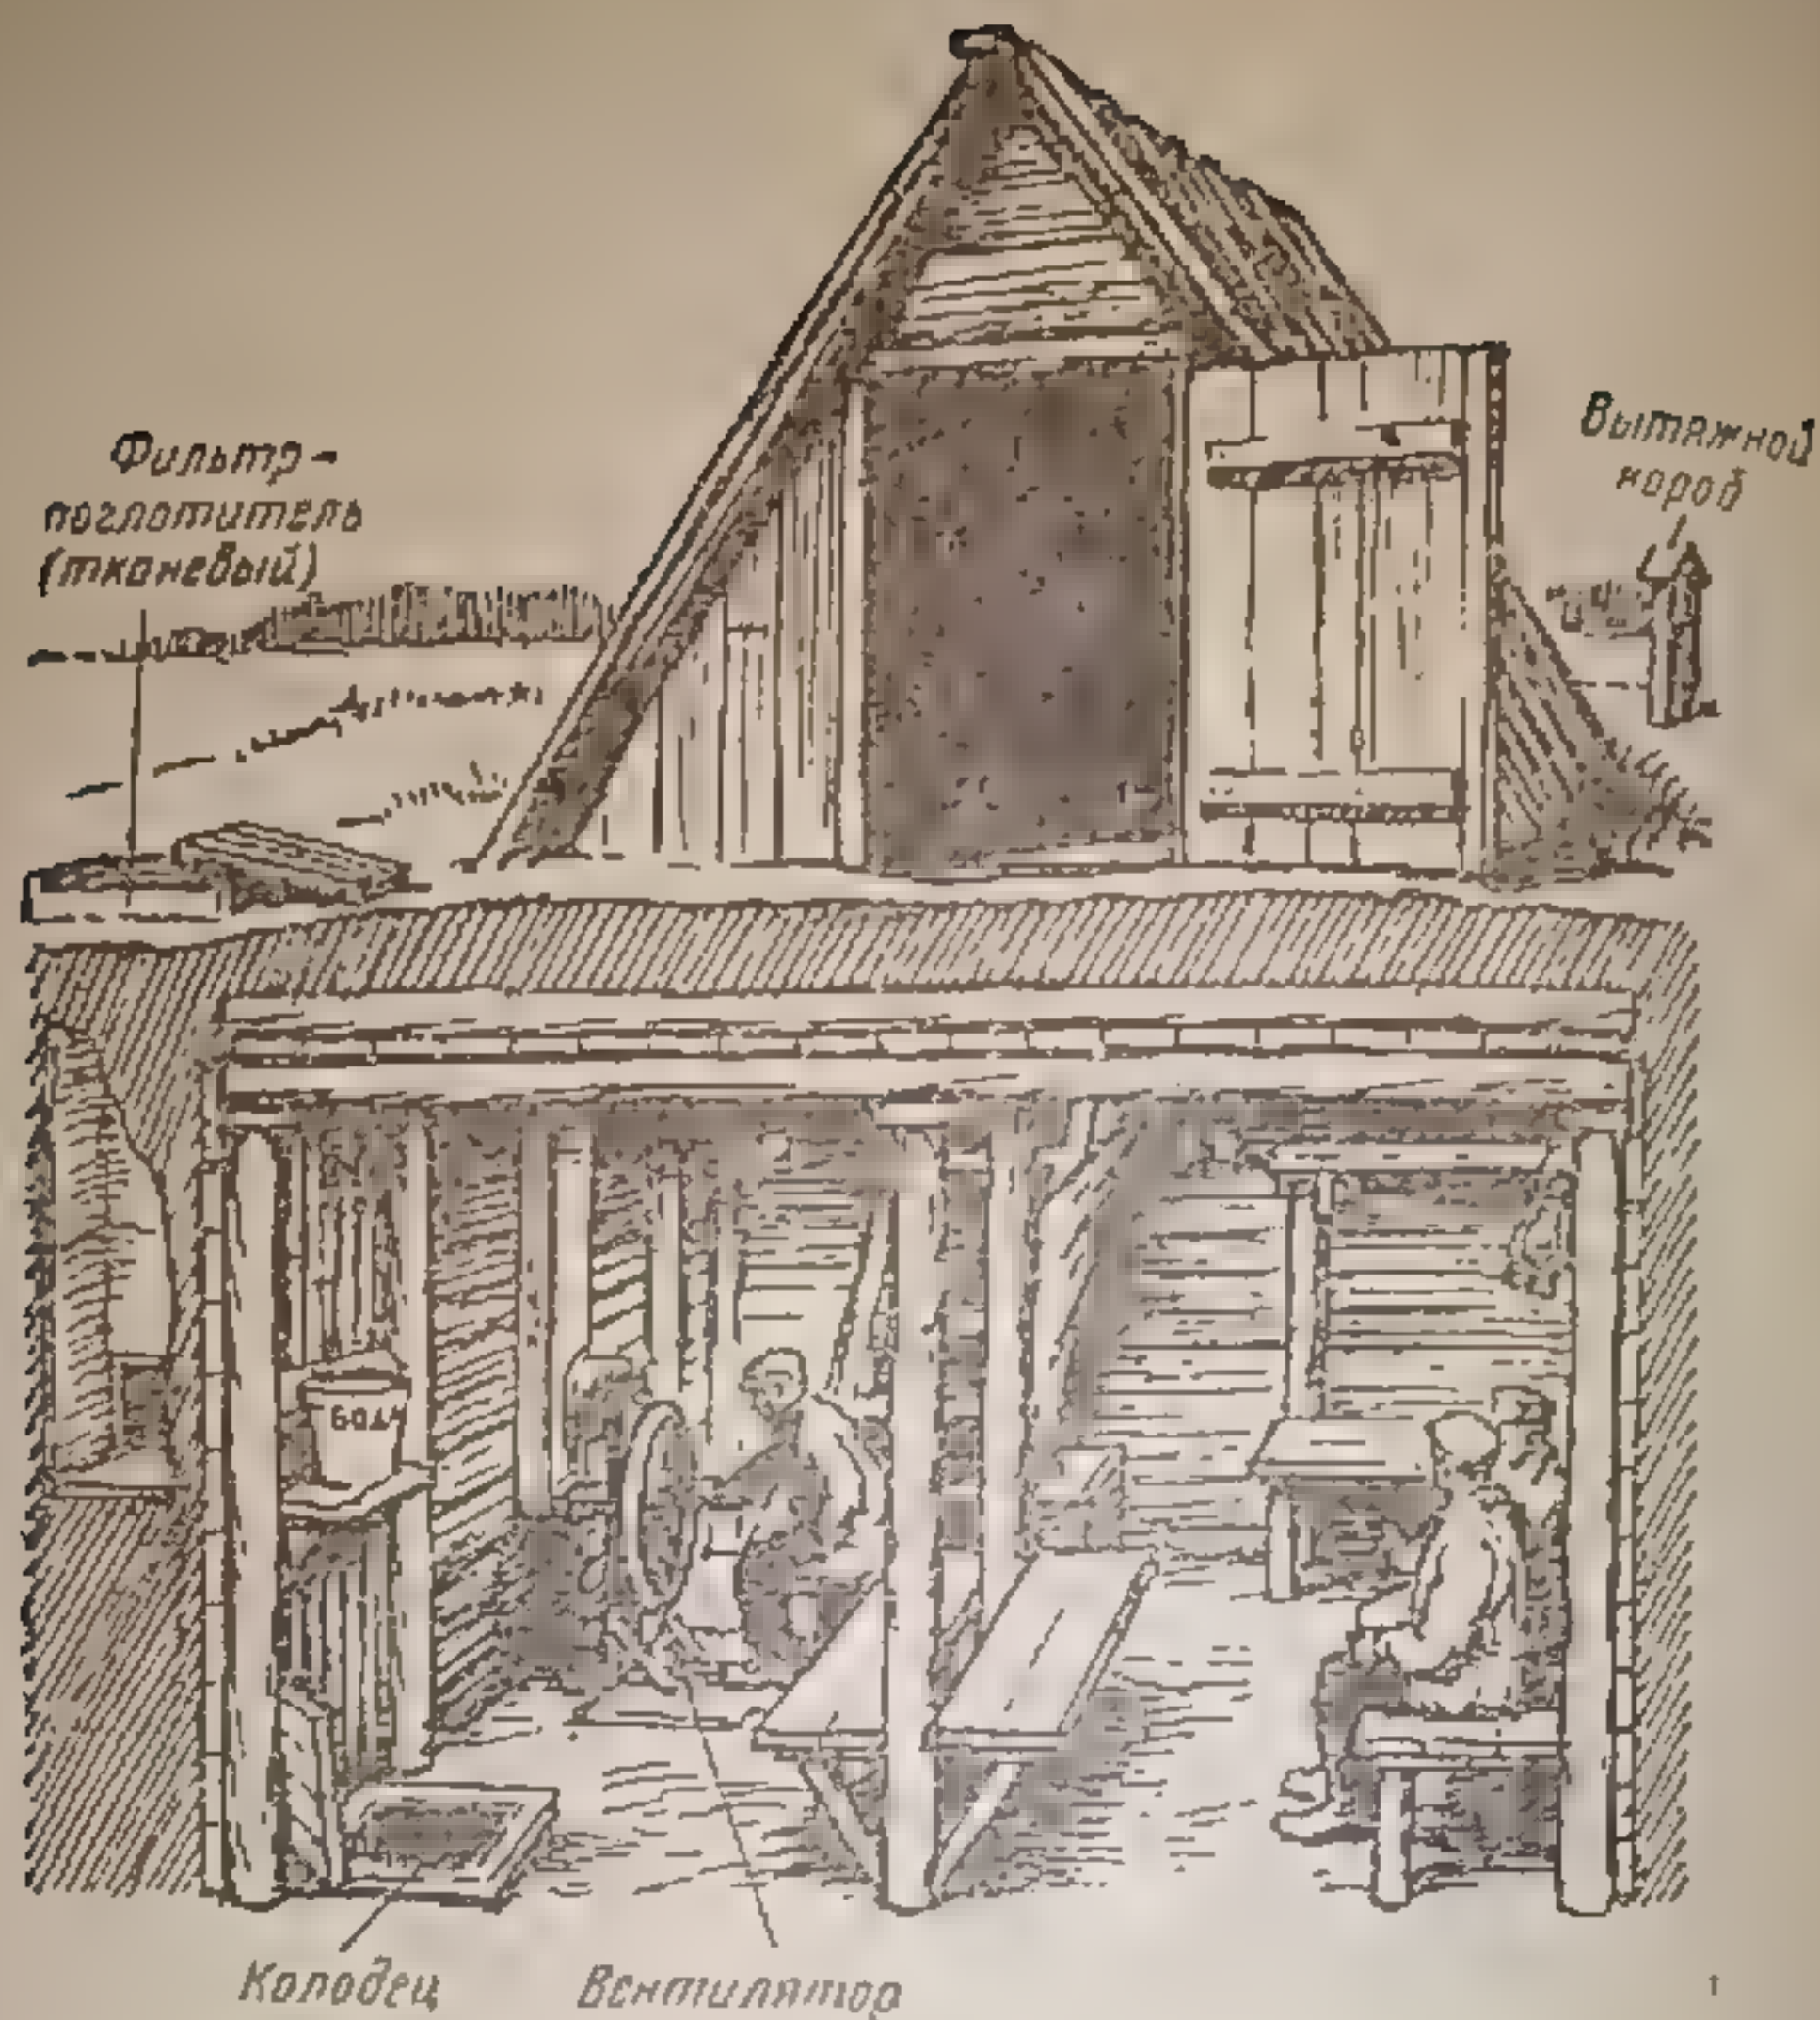 Фильтр-
поглотитель
(тканевый)
Вытяжной
короб
Колодец
Вентилятор